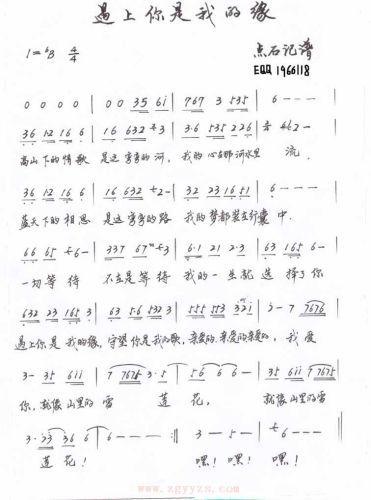 遇上你是我的缘
1=♭B 4/4 点石记谱
EQQ 1966118
0 0 0 0 | 0 0 35 6i | 767 3 535 | 6 - - - |
36 12 16 6 | 16 632 3 | 3·6 535 226 |
高山下的情歌 是这弯弯的河, 我的心在那河水里 流,
36 12 16 6 | 16 632 2- | 32 23 16 51 | 6 - - - |
蓝天下的相思 是这弯弯的路 我的梦都装在行囊 中.
66 65 6- | 337 67 3 | 6·1 21 2·3 | 63 165 6- |
一切等待 不在是等待 我的一生就 选择了你
632 23 165 3 | 63 56 532 3 | 555 553 321 | 2- 7 7676 |
遇上你是我的缘, 守望你是我的歌, 亲爱的, 亲爱的, 亲爱的, 我爱
3- 35 6ii | 7 7675 3·5 | 56 6 6- | 35 6ii 7 7675 |
你, 就像山里的雪 莲花, 就像山里的雪
3·23 36 6 | 6 - - - :|| 3 - 5 - | 6 - - - ||
莲花! 嘿! 嘿! 嘿!
www.zgyyzs.com